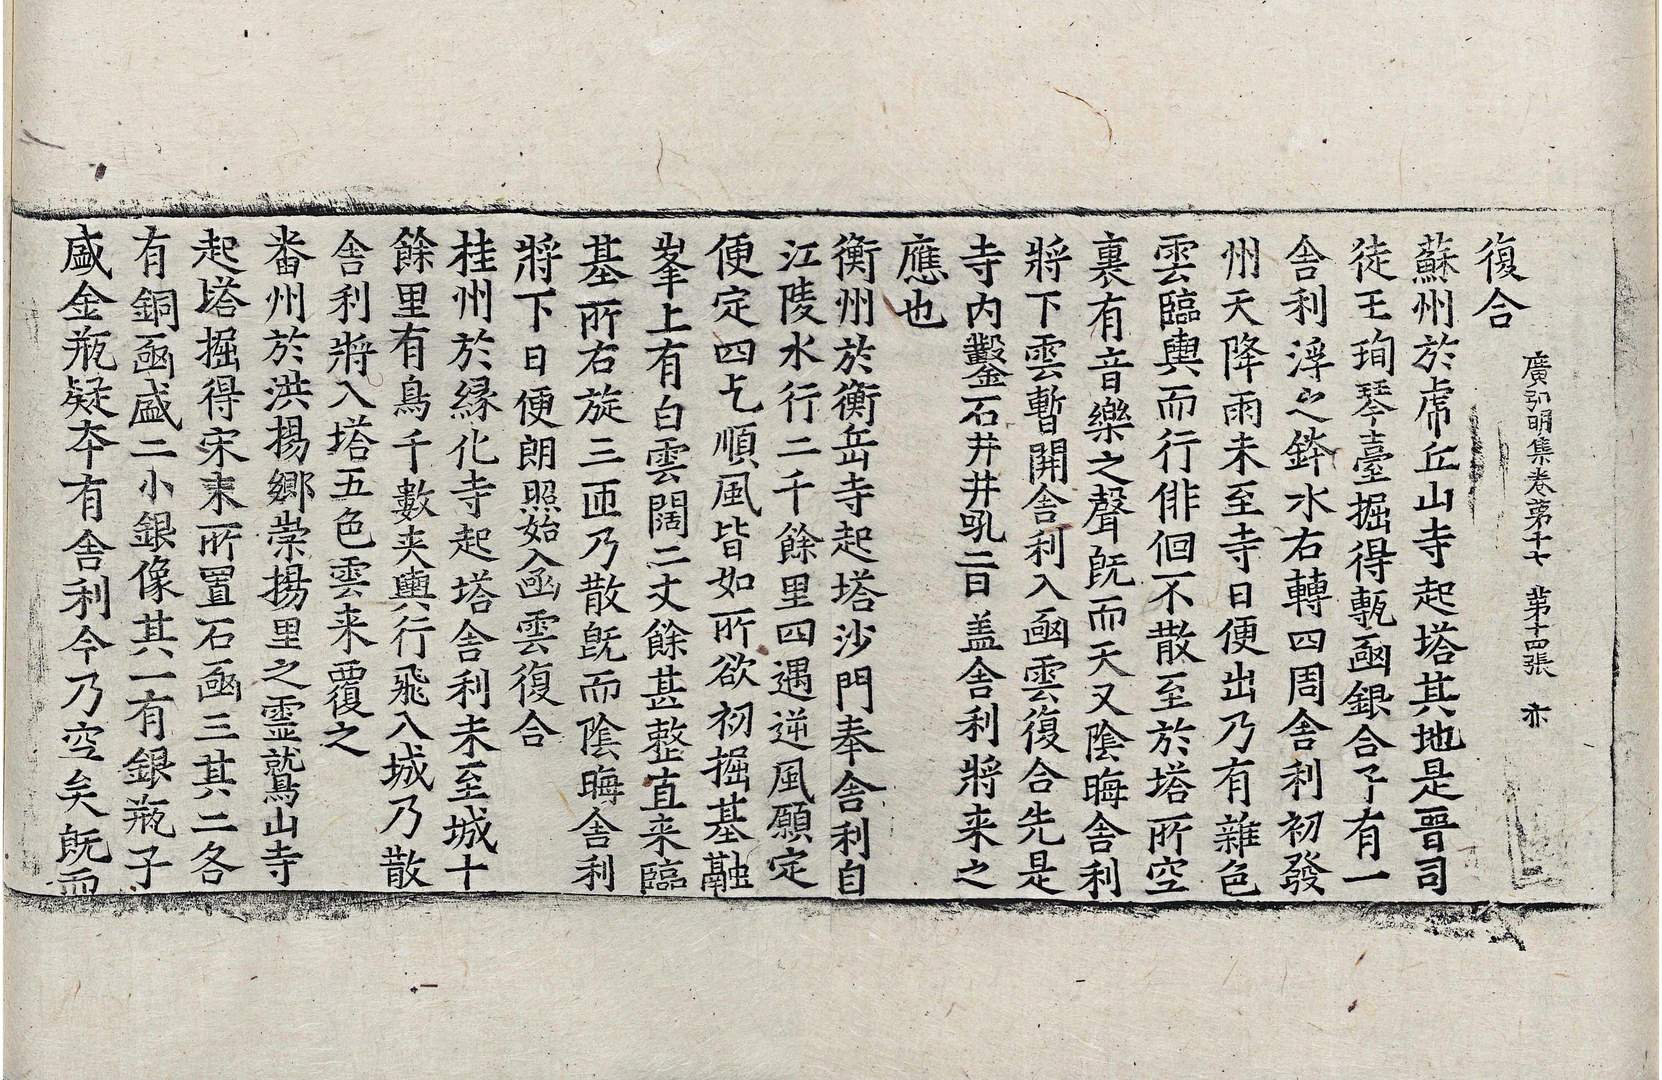 廣弘明集卷第十七 第十四張 亦
復合
蘇州於虎丘山寺起塔其地是晉司
徒王珣琴臺掘得甎函銀合子有一
舍利浮之鉢水右轉四周舍利初發
州天降雨未至寺日便出乃有雜色
雲臨輿而行俳佪不散至於塔所空
裏有音樂之聲旣而天又陰晦舍利
將下雲暫開舍利入函雲復合先是
寺内鑿石井井吼二日盖舍利將来之
應也
衡州於衡岳寺起塔沙門奉舍利自
江陵水行二千餘里四遇逆風願定
便定四乞順風皆如所欲初掘基融
峯上有白雲闊二丈餘甚整直来臨
基所右旋三匝乃散旣而陰晦舍利
將下日便朗照始入函雲復合
桂州於緣化寺起塔舍利未至城十
餘里有鳥千數夾輿行飛入城乃散
舍利將入塔五色雲来覆之
番州於洪楊鄉崇楊里之靈鷲山寺
起塔掘得宋末所置石函三其二各
有銅函盛二小銀像其一有銀瓶子
盛金瓶疑本有舍利今乃空矣旣而